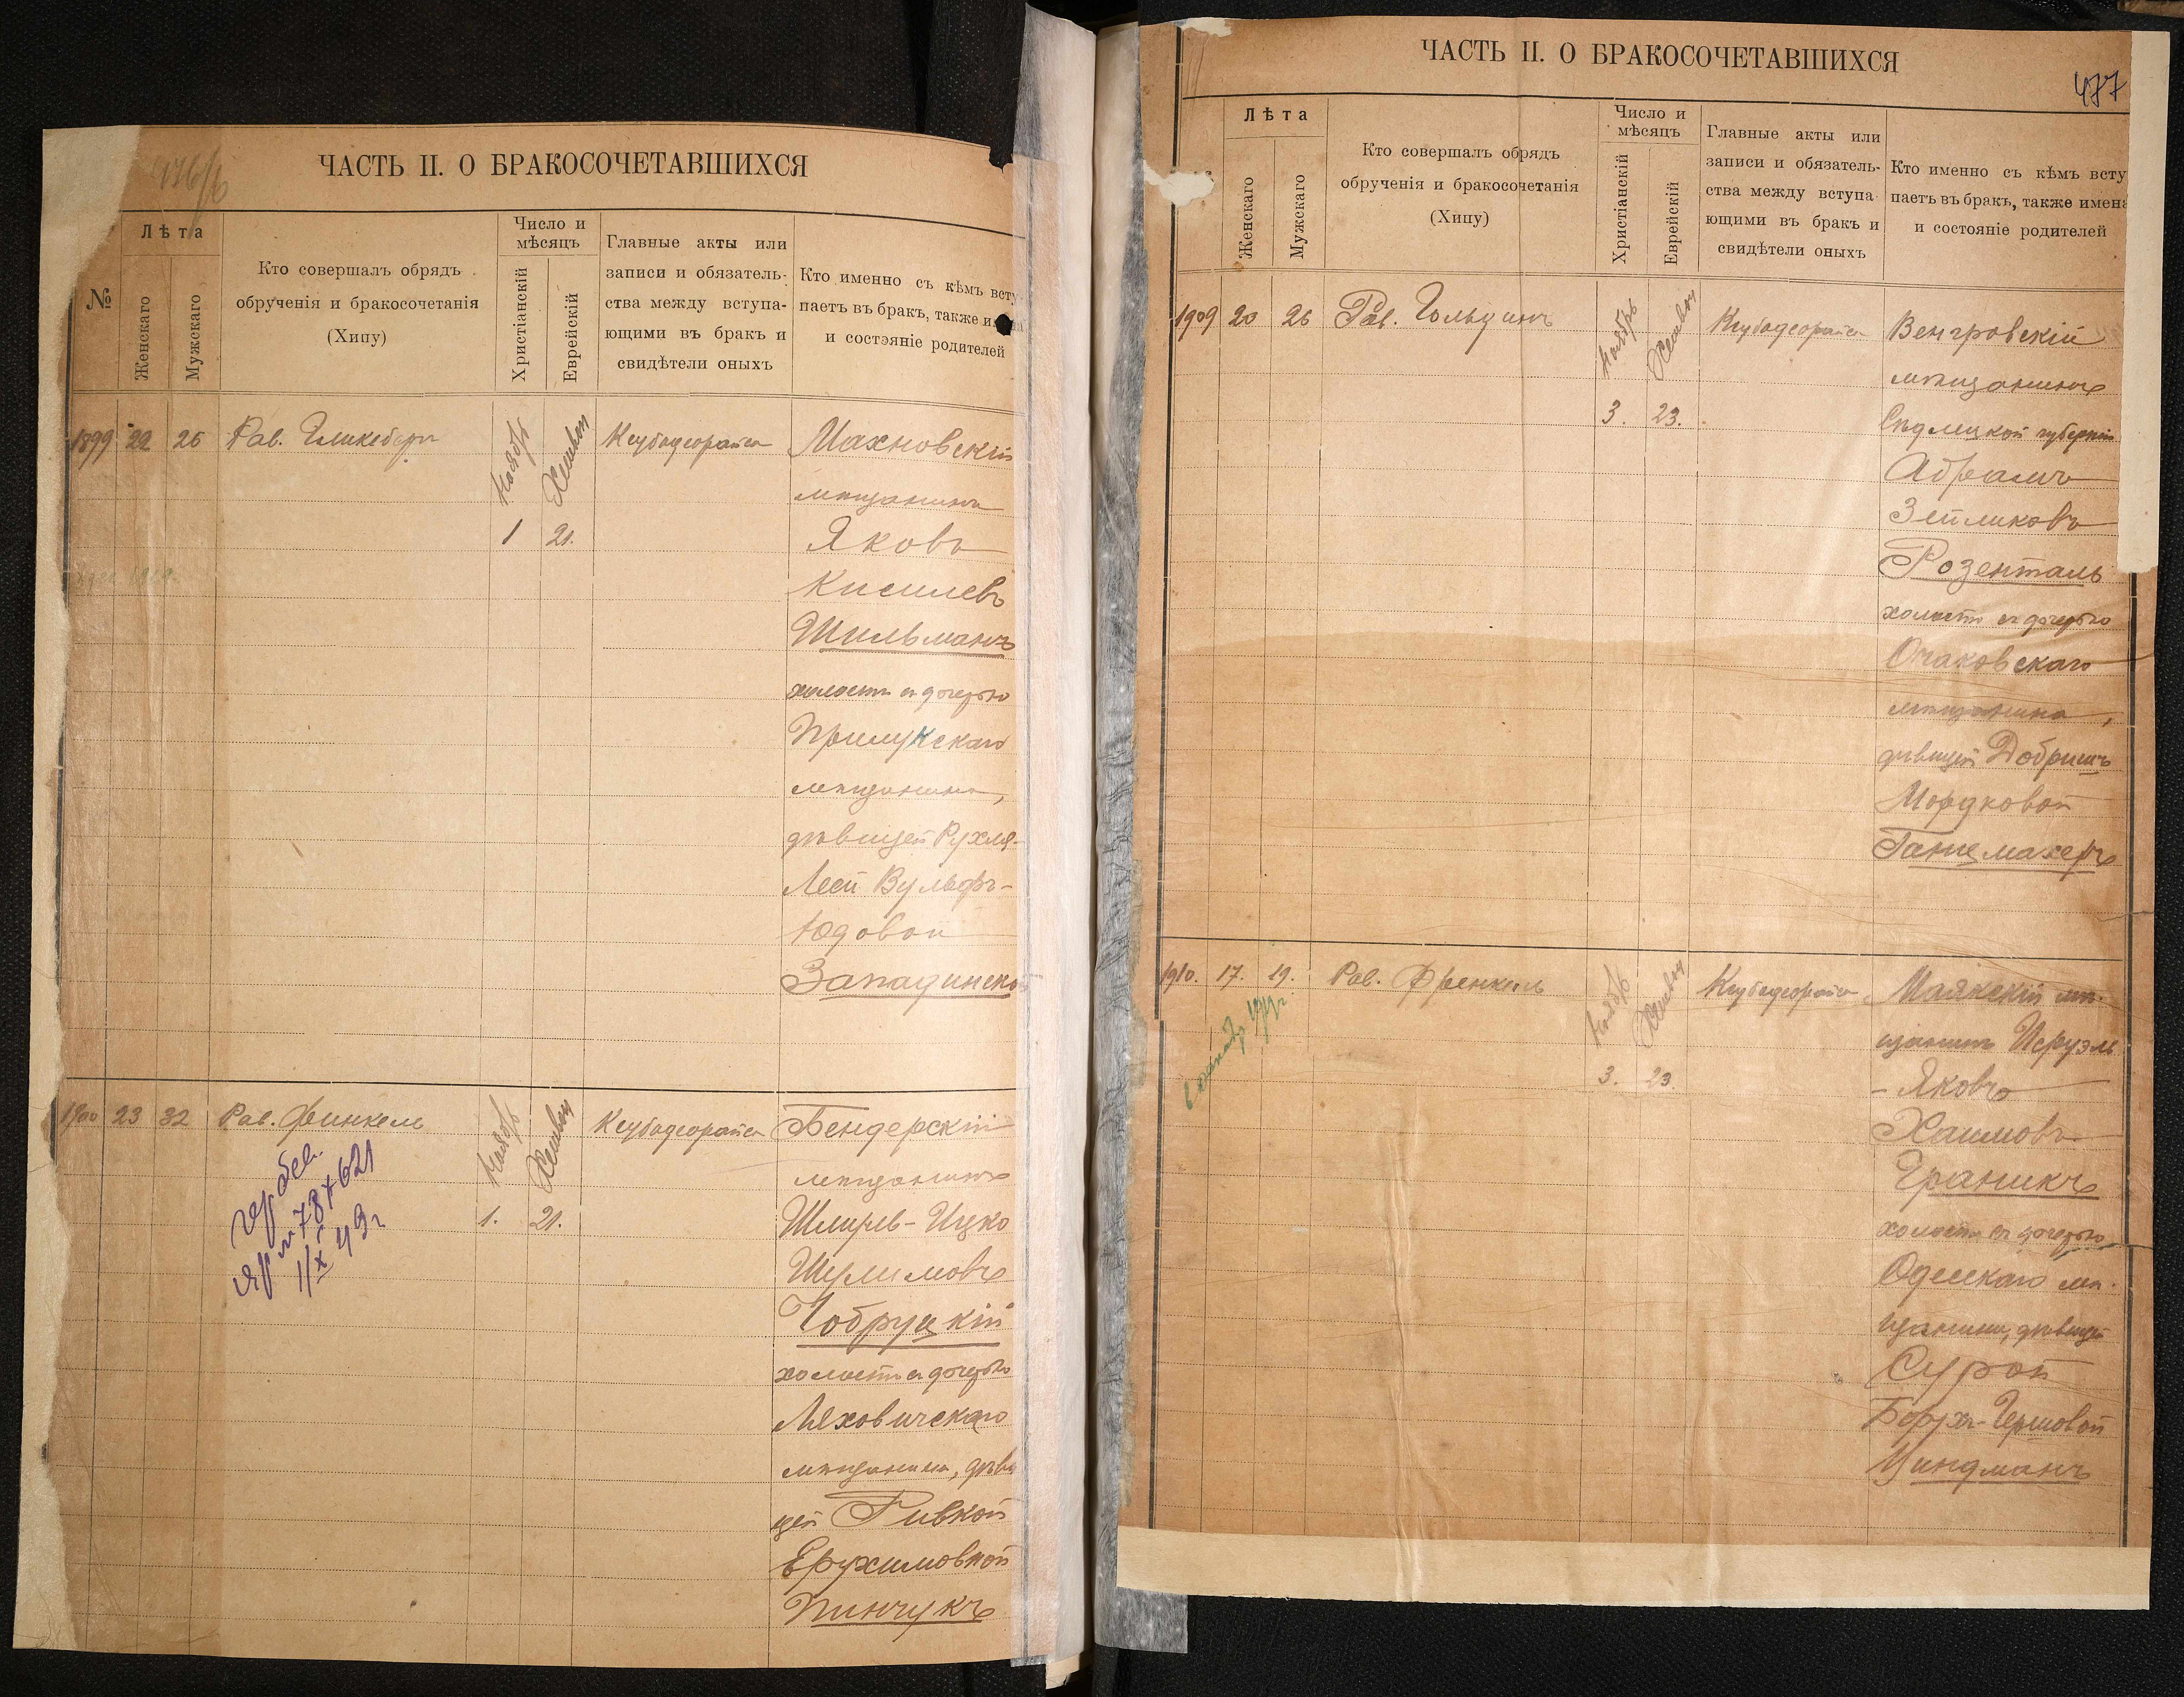 ЧАСТЬ II. О БРАКОСОЧЕТАВШИХСЯ
№
Лѣта
Женскаго
Мужскаго
Кто совершалъ обрядъ
обрученія и бракосочетанія
(Хипу)
Число и
мѣсяцъ
Христіанскій
Еврейскій
Главные акты или
записи и обязатель-
ства между вступа-
ющими въ бракъ и
свидѣтели оныхъ
Кто именно съ кѣмъ всту
паетъ въ бракъ, также
и состояніе родителей
1899 22 26 Рав.
Ноябрь Хешвон
1 21.
Ксубодеорайса
Махновскій
мѣщанинъ
Яковъ
Кисилевъ
Шильманъ
холостъ съ дочерью
Прилукскаго
мѣщанина,
дѣвицей Рухля-
Леей Вульфъ-
Юдовой
Западинской
1900 23 32 Рав. Финкель
Ноябрь Хешвон
1. 21.
Ксубодеорайса
№ 787621
1/X 49 г
Бендерскій
мѣщанинъ
Шмиль-Ицко
Шулимовъ
Чобруцкій
холостъ съ дочерью
Ляховичскаго
мѣщанина, дѣви
цей Ривкой
Ерухимовной
Пинчукъ
ЧАСТЬ II. О БРАКОСОЧЕТАВШИХСЯ
477
Лѣта
Женскаго
Мужскаго
Кто совершалъ обрядъ
обрученія и бракосочетанія
(Хипу)
Число и
мѣсяцъ
Христіанскій
Еврейскій
Главные акты или
записи и обязатель-
ства между вступа
ющими въ бракъ и
свидѣтели оныхъ
Кто именно съ кѣмъ всту
паетъ въ бракъ, также имена
и состояніе родителей
1909 20 26 Рав. Гольцинъ
Ноябрь Хешвон
3. 23.
Ксубодеорайса
Венгровскій
мѣщанинъ
Сѣдлецкой губерніи
Абрамъ
Зейликовъ
Розенталь
холостъ съ дочерью
Очаковскаго
мѣщанина,
дѣвицей Добришъ
Мордковой
Ганцмахеръ
1910. 17. 19. Рав. Френкель
Ноябрь Хешвон
3. 23
Ксубодеорайса
Маякскій мѣ-
щанинъ Исруэль
- Яковъ
Хаимовъ
Граникъ
холостъ съ дочерью
Одесскаго мѣ-
щанина, дѣвицей
Сурой
Борухъ-Гершовой
Циндманъ